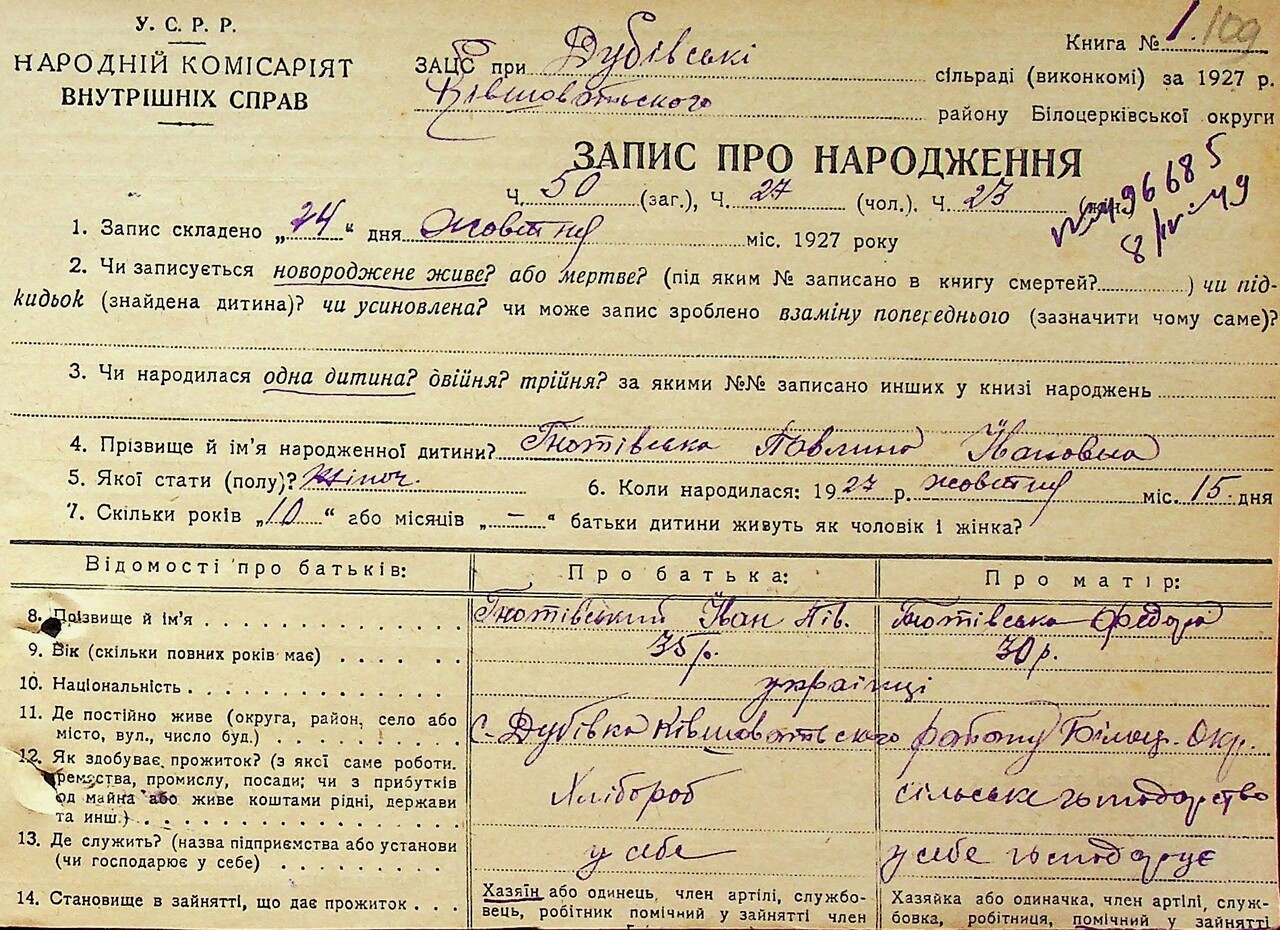 У. С. Р. Р.
НАРОДНІЙ КОМІСАРІЯТ
ВНУТРІШНІХ СПРАВ
Книга № 1. 109
ЗАЦС при Дубівські сільраді (виконкомі) за 1927 р.
Ківшоватьского району Білоцерківської округи
ЗАПИС ПРО НАРОДЖЕННЯ
Ч. 50 (заг.), Ч. 27 (чол.), Ч. 23
496685
8/IV-49
1. Запис складено „24“ дня жовтня міс. 1927 року
2. Чи записується новороджене живе? або мертве? (під яким № записано в книгу смертей?..............) чи під-
кидьок (знайдена дитина)? чи усиновлена? чи може запис зроблено взаміну попереднього (зазначити чому саме)?
3. Чи народилася одна дитина? двійня? трійня? за якими №№ записано инших у книзі народжень
4. Прізвище й ім'я народженної дитини? Гнотівська Павлина Івановна
5. Якої стати (полу)? жіноч. 6. Коли народилася: 1927 р. жовтня міс. 15 дня
7. Скільки років „10“ або місяців „—“ батьки дитини живуть як чоловік і жінка?
Відомості про батьків: Про батька: Про матір:
8. Прізвище й ім'я Гнотівський Іван Гнотівська Федора
9. Вік (скільки повних років має) 35 р. 30 р.
10. Національність українці
11. Де постійно живе (округа, район, село або
місто, вул., число буд.) с. Дубівка Ківшоватьского району Білоц. Окр.
12. Як здобуває прожиток? (з якої саме роботи.
ремества, промислу, посади; чи з прибутків
од майна або живе коштами рідні, держави
та инш.) Хлібороб сільське господарство
13. Де служить? (назва підприємства або установи
(чи господарює у себе) у себе у себе господарює
14. Становище в зайнятті, що дає прожиток
Хазяїн або одинець, член артілі, службо-
вець, робітник помічний у зайнятті член
Хазяйка або одиначка, член артілі, служ-
бовка, робітниця, помічний у зайнятті